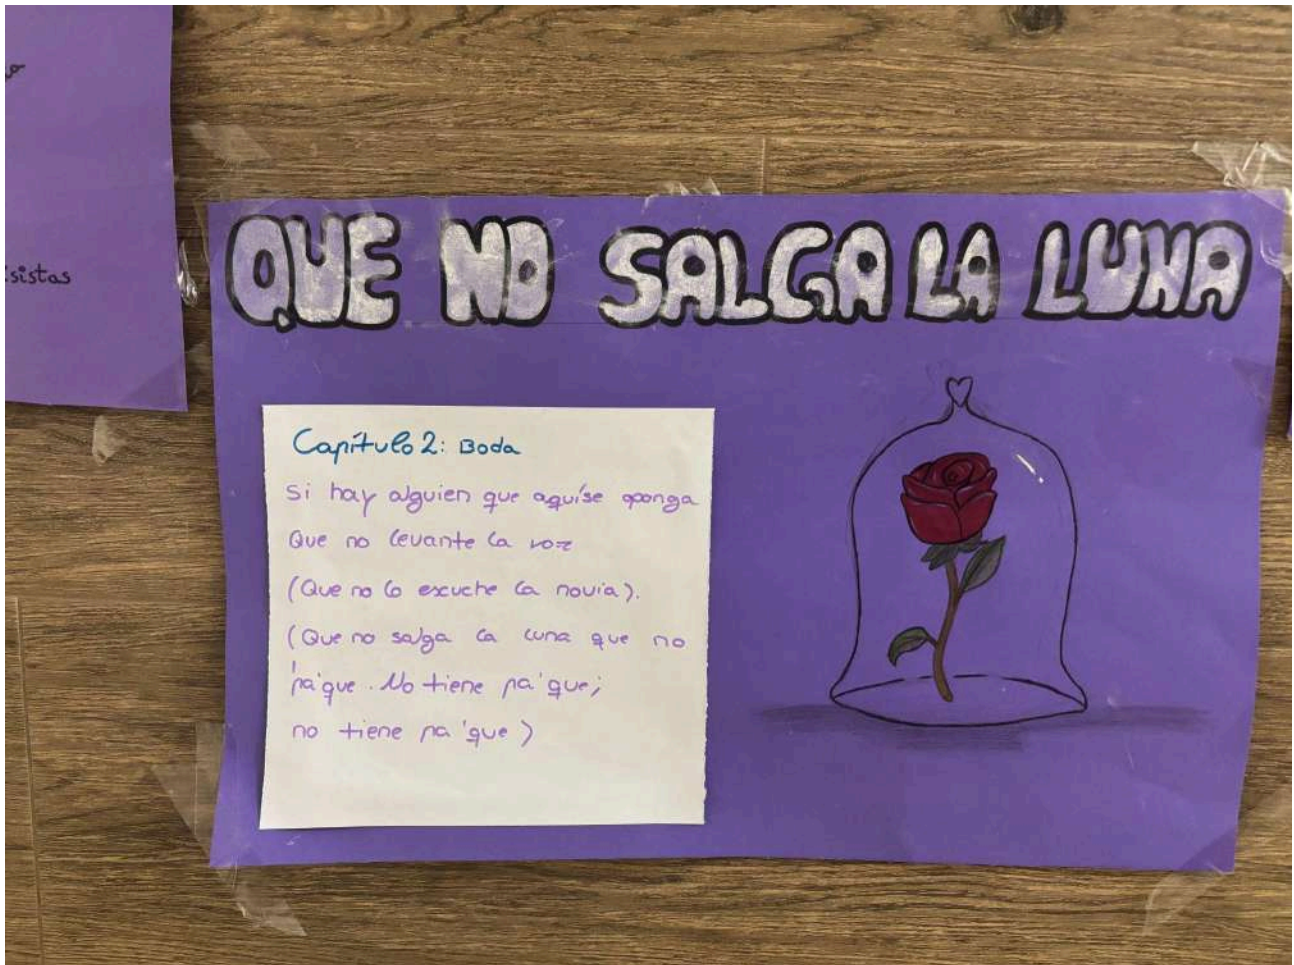 sistas
QUE NO SALGA LA LUNA
Capítulo 2: Boda
Si hay alguien que aquíse oponga
Que no levante la voz
(Que no lo escuche la novia).
(Que no salga la luna que no
pa'que. No tiene pa'que;
no tiene pa'que)